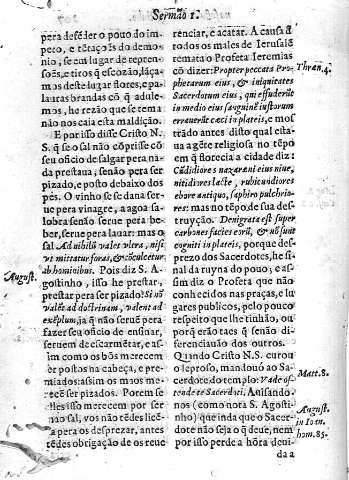 Sermão 1.
pera defẽder o pouo do impero,
e tẽtaçoẽs do demonio,
se em lugar de reprensoẽs,
e tiros q̃ escozão, lãçamos
deste lugar flores, e palauras
brandas cõ q̃ adulemos,
he rezão que se tema
não nos caia esta maldição.
E por isso disse Cristo N.
S. q̃ se o sal não cõprisse cõ
seu oficio de salgar pera nada
prestaua, senão pera ser
pizado, e posto debaixo dos
pès. O vinho se se dana serue
pera vinagre, a agoa salobra
senão serue pera beber,
serue pera lauar: mas o
sal Ad nihilũ valet vltra, nisi
vt mittatur foras, & cõculcetur
ab hominibus. Pois diz S. Agostinho,
isso he prestar,
prestar pera ser pizado: Si nõ
valẽt ad doctrinam, valent ad
exẽplum. ja q̃ não serue pera
fazer seu oficio de ensinar,
seruem de escarmẽtar, e assim
como os bõs merecem
ser postos na cabeça, e premiados:
assim os maos merecẽ
ser pizados. Porem se
elles isso merecem por ser
mao sal, vos não tẽdes licẽça
pera os desprezar, antes
tẽdes obrigação de os reue
August.
renciar, e acatar. A causa d
todos os males de Ierusalẽ
remata o Profeta Ieremias
cõ dizer: Propter peccata Prophetarum
eius, & iniquitates
Sacerdotum eius, qui effuderũt
in medio eius sanguinẽ iustorum
errauerũt cæci in plateis, e mostrãdo
antes disto qual estaua
a gẽte religiosa no tẽpo
em q̃ florecia a cidade diz:
Cãdidiores nazarei eius niue,
nitidiores lacte, rubicundiores
ebore antiquo, saphiro pulchriores:
mas no tẽpo de sua destruyção.
Denigrata est super
carbones facies eorũ, & nõ sunt
cogniti in plateis, porque desprezo
dos Sacerdotes, he sinal
da ruyna do pouo; e assim
diz o Profeta que não
conhecidos nas praças, e lugares
publicos, pelo pouco
respeito que lhe tinhão, ou
porq̃ erão taes q̃ senão diferenciauão
dos outros.
Quando Cristo N. S. curou
o leproso, mandouo ao Sacerdote,
do templo: Vade ostende
te Sacerdoti. Auisandonos
(como nota S. Agostinho)
que inda que o Sacerdote
não seja o q̃ deue, nem
por isso perde a hõra deuida
a
Thren. 4.
Matt. 8.
August.
in Ioan.
hom. 85.